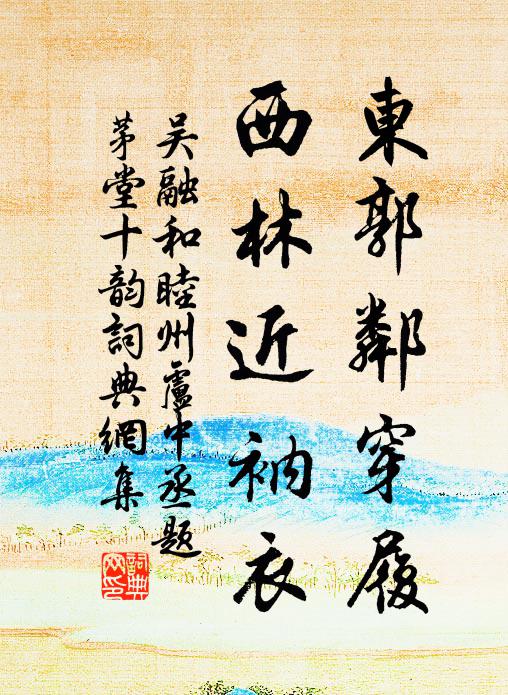 東郭鄰穿履
西林近衲衣
吴融和睦州盧中丞題
茅堂十韵詞典網集
詞典